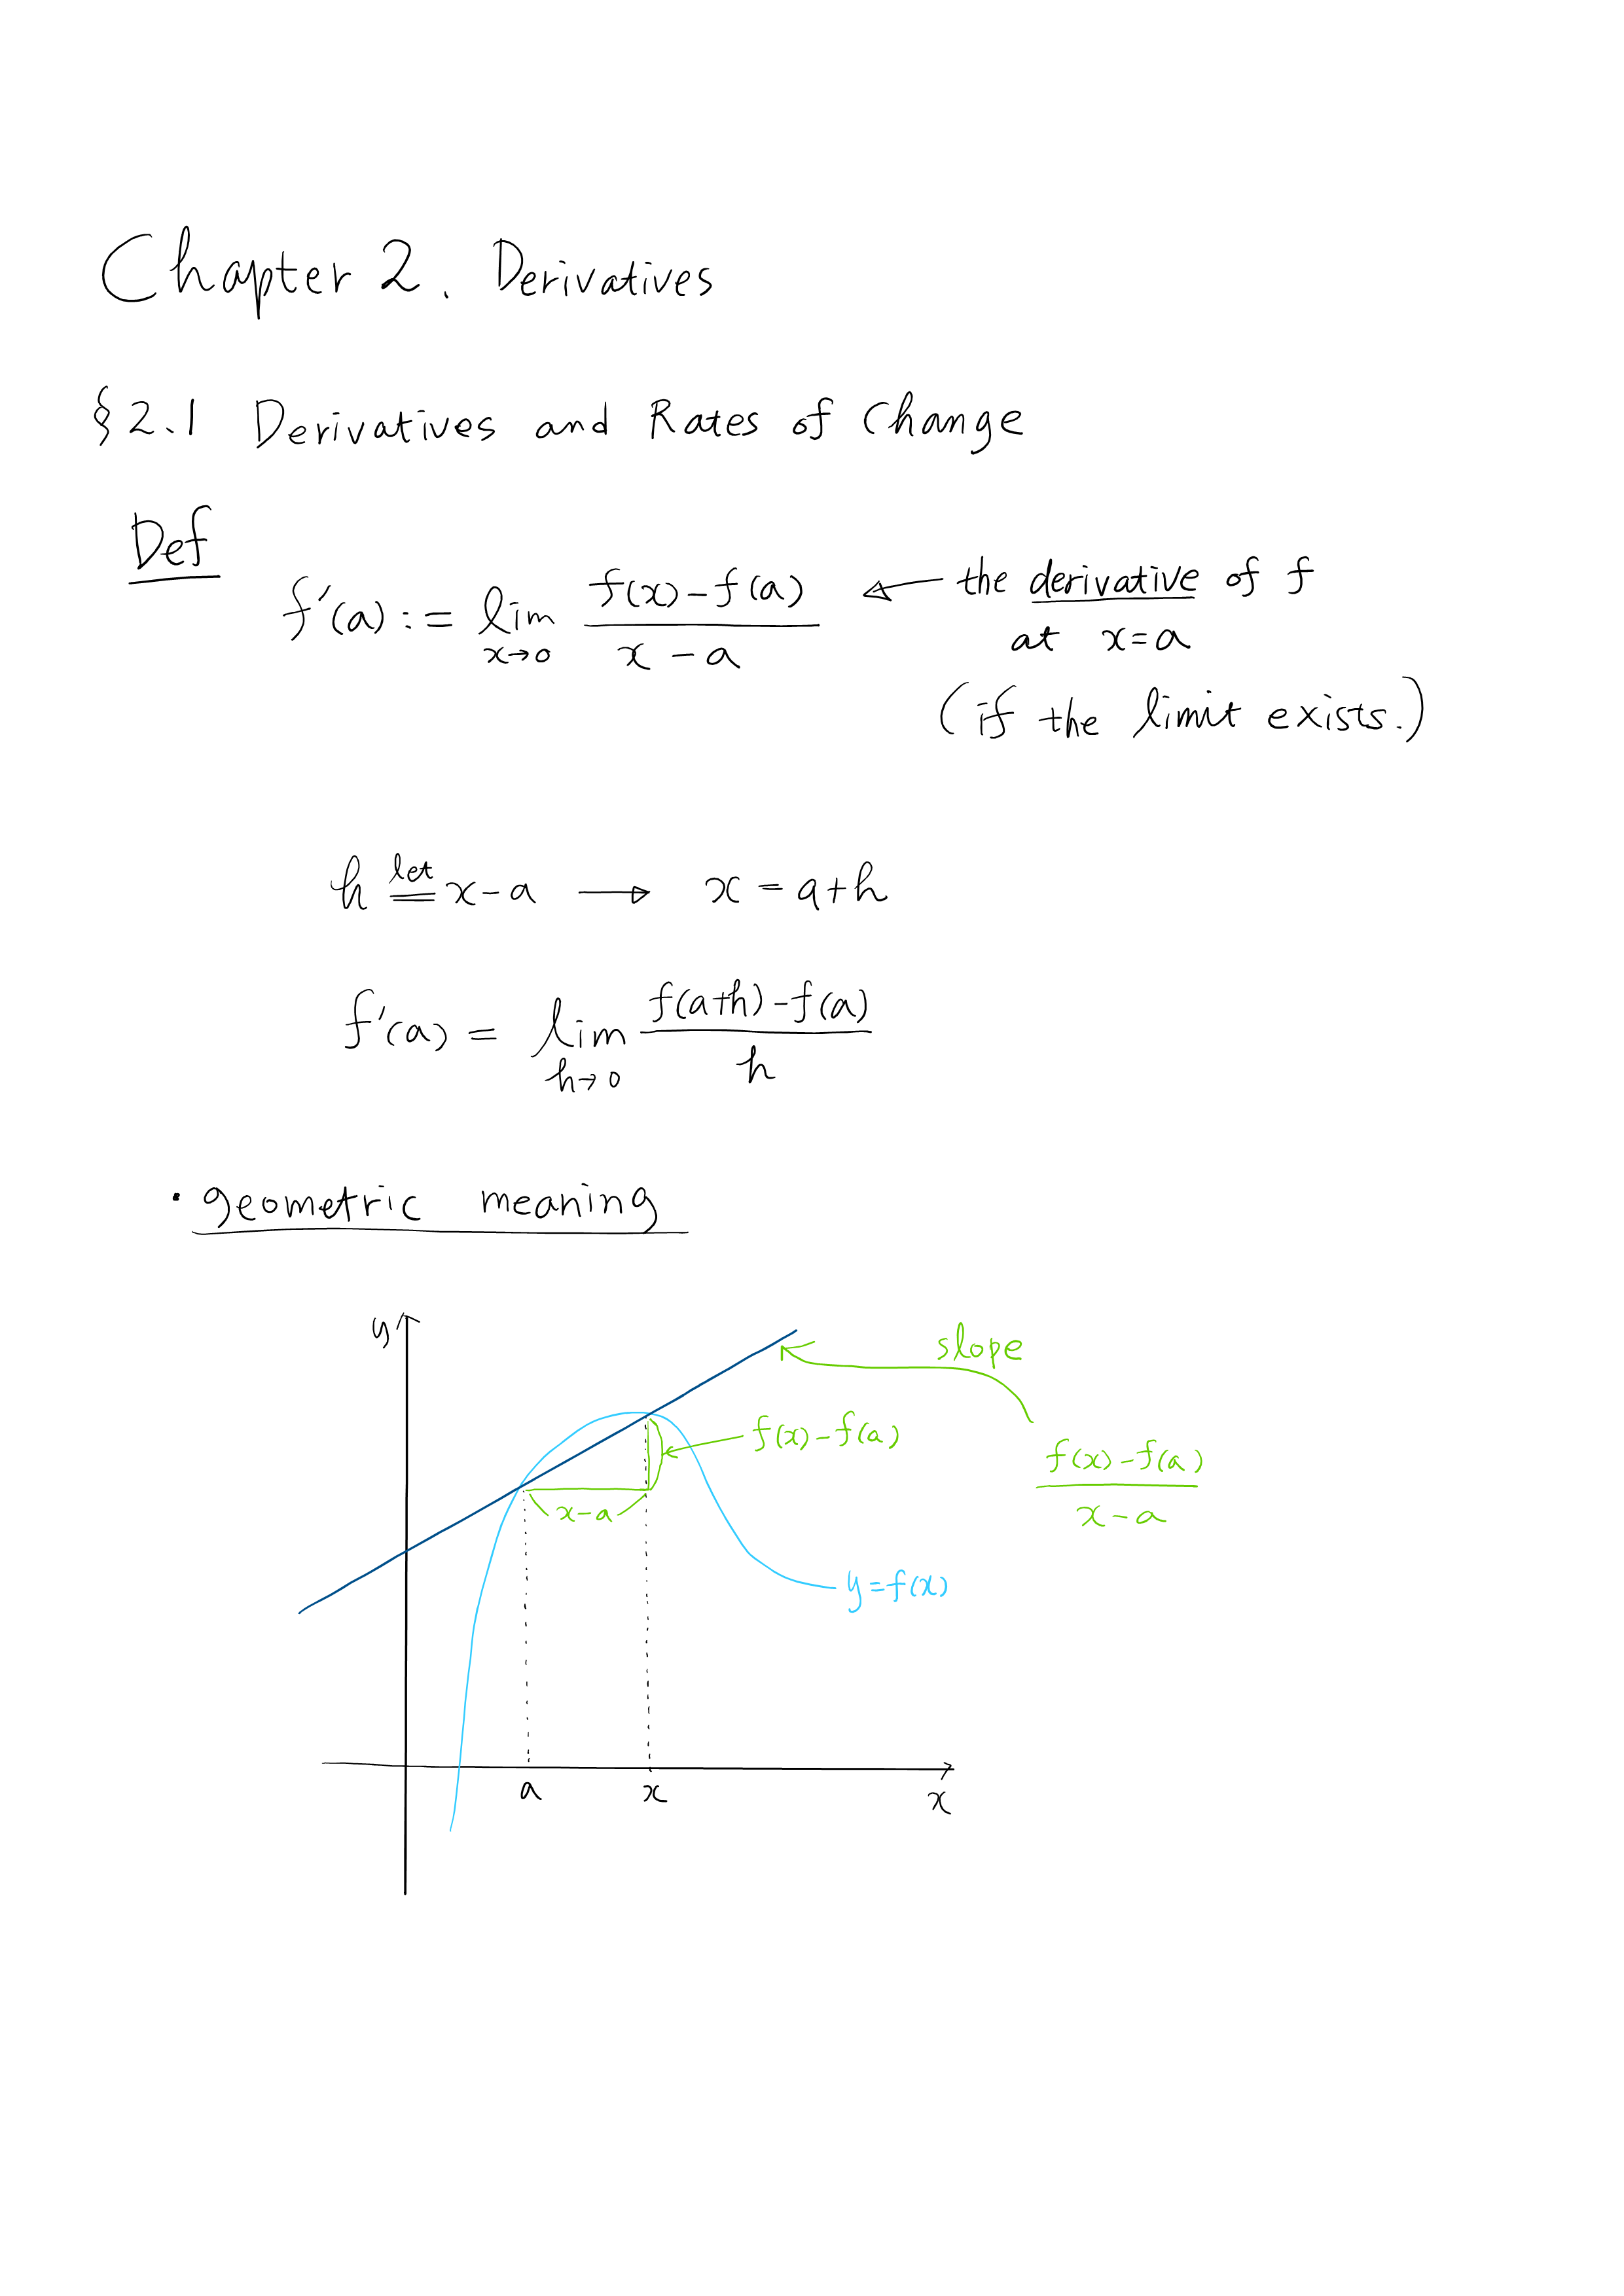 Chapter 2. Derivatives
§2.1 Derivatives and Rates of Change
Def
f'(a) := lim_{x→0} (f(x)-f(a))/(x-a) ← the derivative of f
at x=a
(if the limit exists.)
h let= x-a → x = a+h
f'(a) = lim_{h→0} (f(a+h)-f(a))/h
· geometric meaning
y
slope
f(x)-f(a)
(f(x)-f(a))/(x-a)
x-a
y=f(x)
a x x